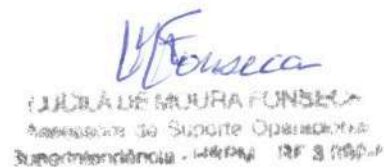 Fonseca
LUCILA DE MOURA FONSECA
de Suporte Operacional
Superintendência -